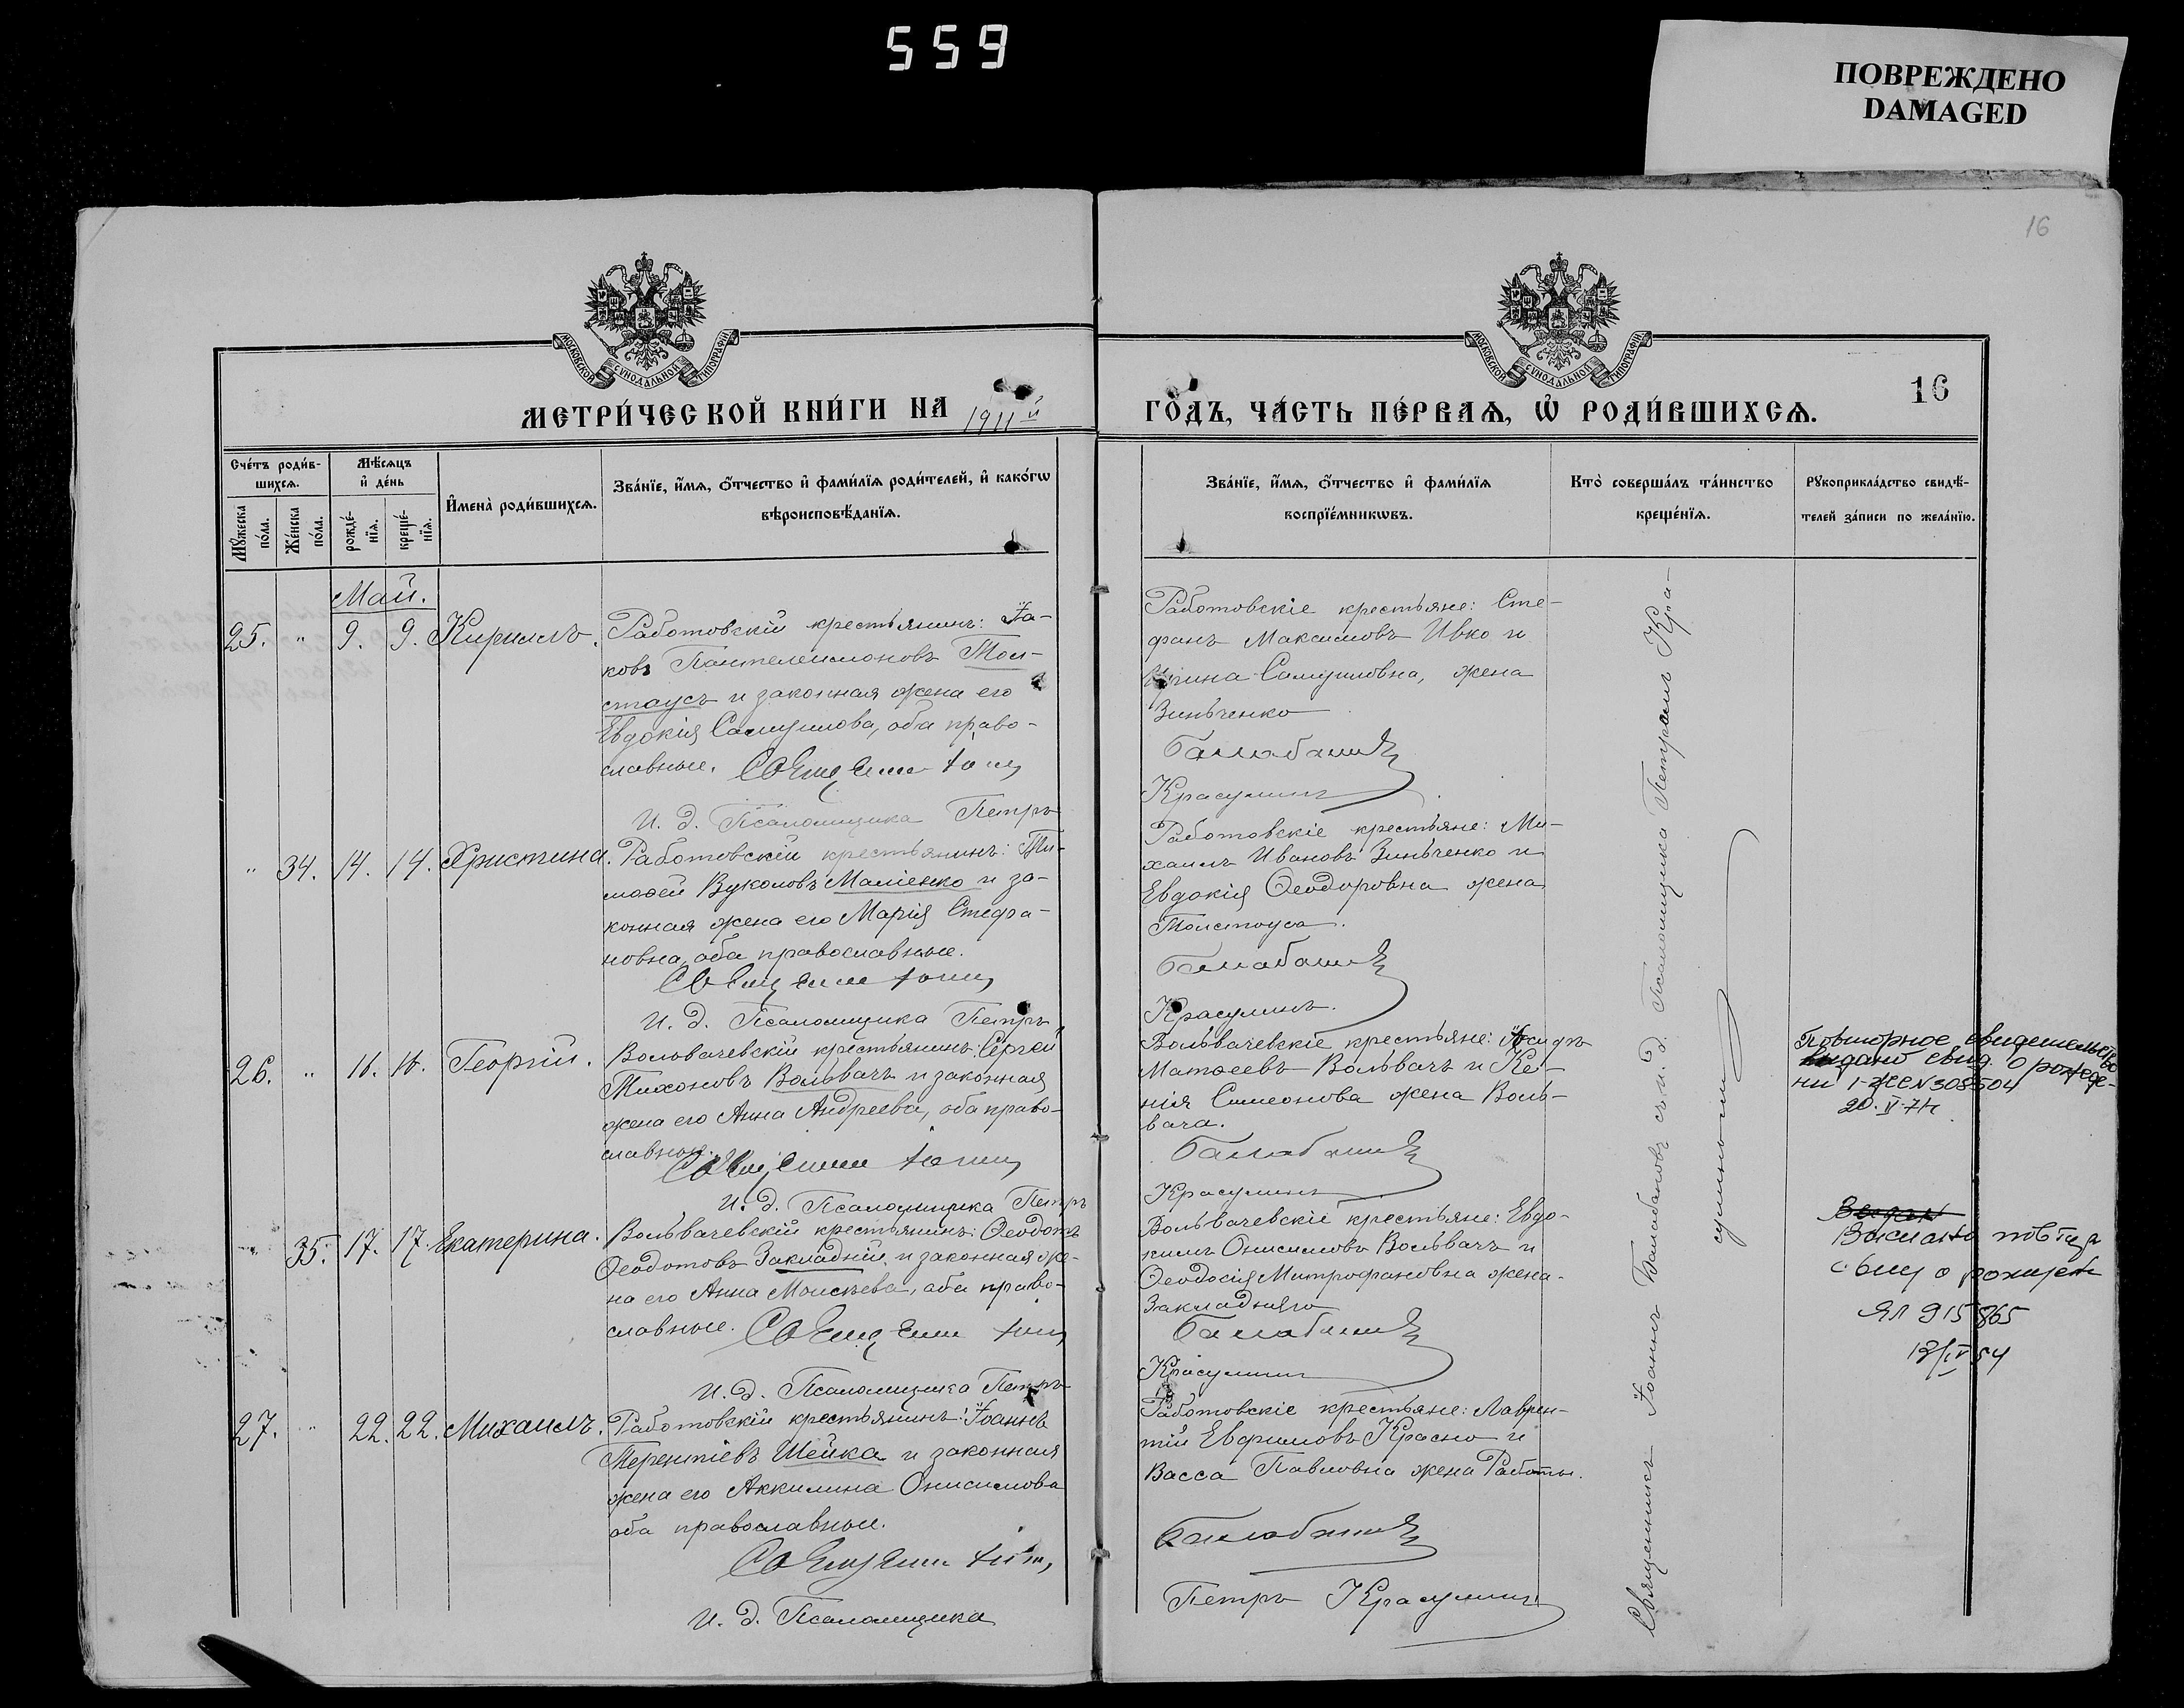 559
ПОВРЕЖДЕНО
DAMAGED
16
МОСКОВСКОЙ СѴНОДАЛЬНОЙ ТИПОГРАФІИ
МОСКОВСКОЙ СѴНОДАЛЬНОЙ ТИПОГРАФІИ
16
МЕТРИ́ЧЕСКОЙ КНИ́ГИ НА 1911й
ГО́ДЪ, ЧА́СТЬ ПЕ́РВАѦ, Ѡ҆ РОДИ́ВШИХСѦ.
Сче́тъ роди́в-
шихсѧ.
Мѣ́сѧцъ
и҆ де́нь
Мꙋ́жеска
по́ла.
Же́нска
по́ла.
рожде́-
нїѧ.
креще́-
нїѧ.
И҆мена̀ роди́вшихсѧ.
Зва́нїе, и҆́мѧ, ѻ҆́тчество и҆ фами́лїѧ роди́телей, и҆ како́гѡ
вѣроисповѣ́данїѧ.
Зва́нїе, и҆́мѧ, ѻ҆́тчество и҆ фами́лїѧ
воспрїе́мникѡвъ.
Кто̀ соверша́лъ та́инство
креще́нїѧ.
Рꙋкоприкла́дство свидѣ́-
телей за́писи по жела́нїю.
Май.
25. " 9. 9. Кириллъ.
Работовскій крестьянинъ: Іа-
ковъ Пантелеимоновъ Тол-
стоусъ и законная жена его
Евдокія Самуилова, оба право-
славные. Священникъ Іоаннъ
И. д. Псаломщика Петръ
Работовскіе крестьяне: Сте-
фанъ Максимовъ Ивко и
Ирина Самуиловна, жена
Зинъченко
Балабановъ
Красулинъ
" 34. 14. 14. Христина.
Работовскій крестьянинъ: Ти-
моѳей Вуколовъ Маліенко и за-
конная жена его Марія Стефа-
новна, оба православные.
Священникъ Іоаннъ
И. д. Псаломщика Петръ
Работовскіе крестьяне: Ми-
хаилъ Ивановъ Зинъченко и
Евдокія Ѳеодоровна жена
Толстоуса.
Балабановъ
Красулинъ.
26. " 16. 16. Георгій.
Вольвачевскій крестьянинъ: Сергей
Тихоновъ Вольвачъ и законная
жена его Анна Андреева, оба право-
славные.
Священникъ Іоаннъ
И. д. Псаломщика Петръ
Вольвачевскіе крестьяне: Іосифъ
Матѳеевъ Вольвачъ и Ксе-
нія Симеонова жена Воль-
вача.
Балабановъ
Красулинъ
Повторное свидетельство
выдано свид. о рожде-
нии I-ЖЕ N 308504
20.VI-74
" 35. 17. 17. Екатерина.
Вольвачевскій крестьянинъ: Ѳеодотъ
Ѳеодотовъ Закладній и законная же-
на его Анна Моисѣева, оба право-
славные. Священникъ Іоаннъ
И. д. Псаломщика Петръ
Вольвачевскіе крестьяне: Евдо-
кимъ Онисимовъ Вольвачъ и
Ѳеодосія Митрофановна жена
Закладняго
Балабановъ
Красулинъ
Выслано
свид о рожден
ЯЛ 915865
54
27. " 22. 22. Михаилъ.
Работовскій крестьянинъ: Іоаннъ
Терентіевъ Шейка и законная
жена его Аккилина Онисимова
оба православные.
Священникъ Іоаннъ
И. д. Псаломщика
Работовскіе крестьяне: Лаврен-
тій Евфимовъ Красно и
Васса Павловна жена Работы.
Балабановъ
Петръ Красулинъ
Священникъ Іоаннъ Балабановъ съ и. д. Псаломщика Петромъ Кра-
сулинымъ